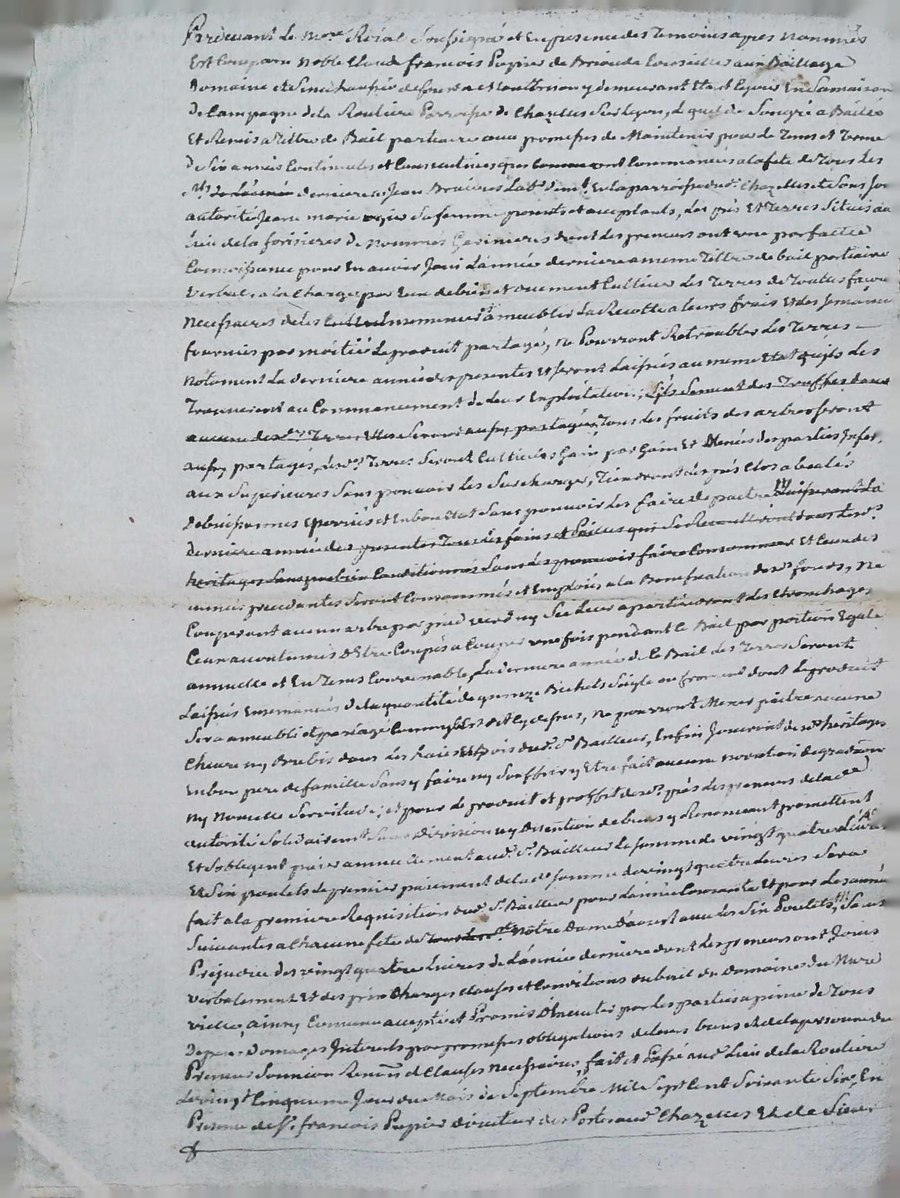 Pardevant Le no.re Roial Soussigné et En presence des Temoins apres nommés
Est Comparu Noble Claude francois Pupier de Brioude Conseiller aux Bailliage
Domaine et Senechaussée de forez a Montbrison y demeurant Etant Ce jour En Sa maison
De Campagne de la Rouliere Parroisse de Chazelles Sur Lyon, Lequel de Son gré a Baillé
Et Remis a Tittre de Bail partiaire aux promesses de Maintenir pour Le Tems et Terme
De Six années Continuelles et Consecutives qui ont Commencés a la fete de Tous Les
Sts derniere a Jean Lab.r En la parroisse du d. Chazelles et de Son
autorité Jeanne marie Sa femme presents et acceptants, Les prés Et Terres Situés au
Lieu de la forisieres dont Les preneurs ont une parfaitte
Connoissance pour En avoir Joui L'année derniere a meme Tittre de bail partiaire
Verbal, a la Charge par Eux de bien et duement Cultiver Les Terres de Touttes façons
Necessaires ameubler La Recolte a leurs frais Et des Semances
fournies par moitié Le produit partagé, ne Pourront Retroubler Les Terres
Notament La derniere année des presentes Et Seront Laissées au meme Etat qu'ils Les
Trouverent au Commancement de Leur Exploitation, S'ils Sement des Truffes dans
aucune des d. Terres Elles Seront aussy partagées, Tous Les fruits des arbres Seront
aussy partagés, Les d. Terres Seront Cultivées Gain par Gain Et des parties Infer.
aux Superieures Sans pouvoir Les Surcharger, Tiendront Les prés Clos a bealés
De buissonnés Epierrés et En bon Etat Sans pouvoir Les faire depaitre
Derniere année des presentes Tous Les foins et Pailles qui Se Recueilliront dans Les d.
heritages Sans pouvoir faire Consommer Et Ceux des
années precedantes Seront Consommés et Emploiés a la Bonification des d. fonds, Ne
Couperont aucun arbre par pied verd ny Sec Leur apartiendront Les Etronchages
Ceux accoutumés D'Etre Coupés a Couper une fois pendant Le Bail par portion Egale
annuelle et En Tems Convenable, La derniere année de Ce Bail Les Terres Seront
Laissées Ensemancées de la quantité de quinze Bichets Seigle ou froment dont Le produit
Sera ameublé et partagé Comme Est dit Cy dessus, Ne pourront Mener paitre aucune
Chevre ny Brebis dans Les haies Et Bois du d. Sr. Bailleur, Enfin Jouiront des d. heritages
En bon pere de famille Sans y faire ny Souffrir y Etre fait aucune novation degradation
ny Nouvelle Servitude, et pour Le produit et proffit des d. prés Les preneurs de la ditte
autorité Solidairem.t Sans Division ny Discution de biens y Renonceant promettent
Et S'obligent paier annuellement au d. Sr. Bailleur La Somme de vingt quatre Livres
Et Six poulets Le premier paiement de la d. Somme de vingt quatre Livres Sera
fait a la premiere Requisition du d. Sr. Bailleur pour L'année Courante Et pour Les années
Suivantes a Chacune fete de Notre Dame D'aoust avec Les Six Poulets, Sans
Prejudice des vingt quatre Livres de L'année derniere dont Les preneurs ont Jouis
verbalement Et des prix Charges Clauses et Conditions du bail du Domaine du
ainsy Convenu accepté et Promis Observer par Les parties a peine de Tous
Depens Domages Interets par promesses obligations de Leurs biens et de la personne du
Preneur Soumission Renon.n et Clauses Necessaires, fait et Passé au d. Lieu de la Rouliere
Le vingt Cinquieme Jour du Mois de Septembre Mile Sept Cent Soixante Six, En
Presence de Sr. francois Pupier directeur des Postes au d. Chazelles Et de Sieur